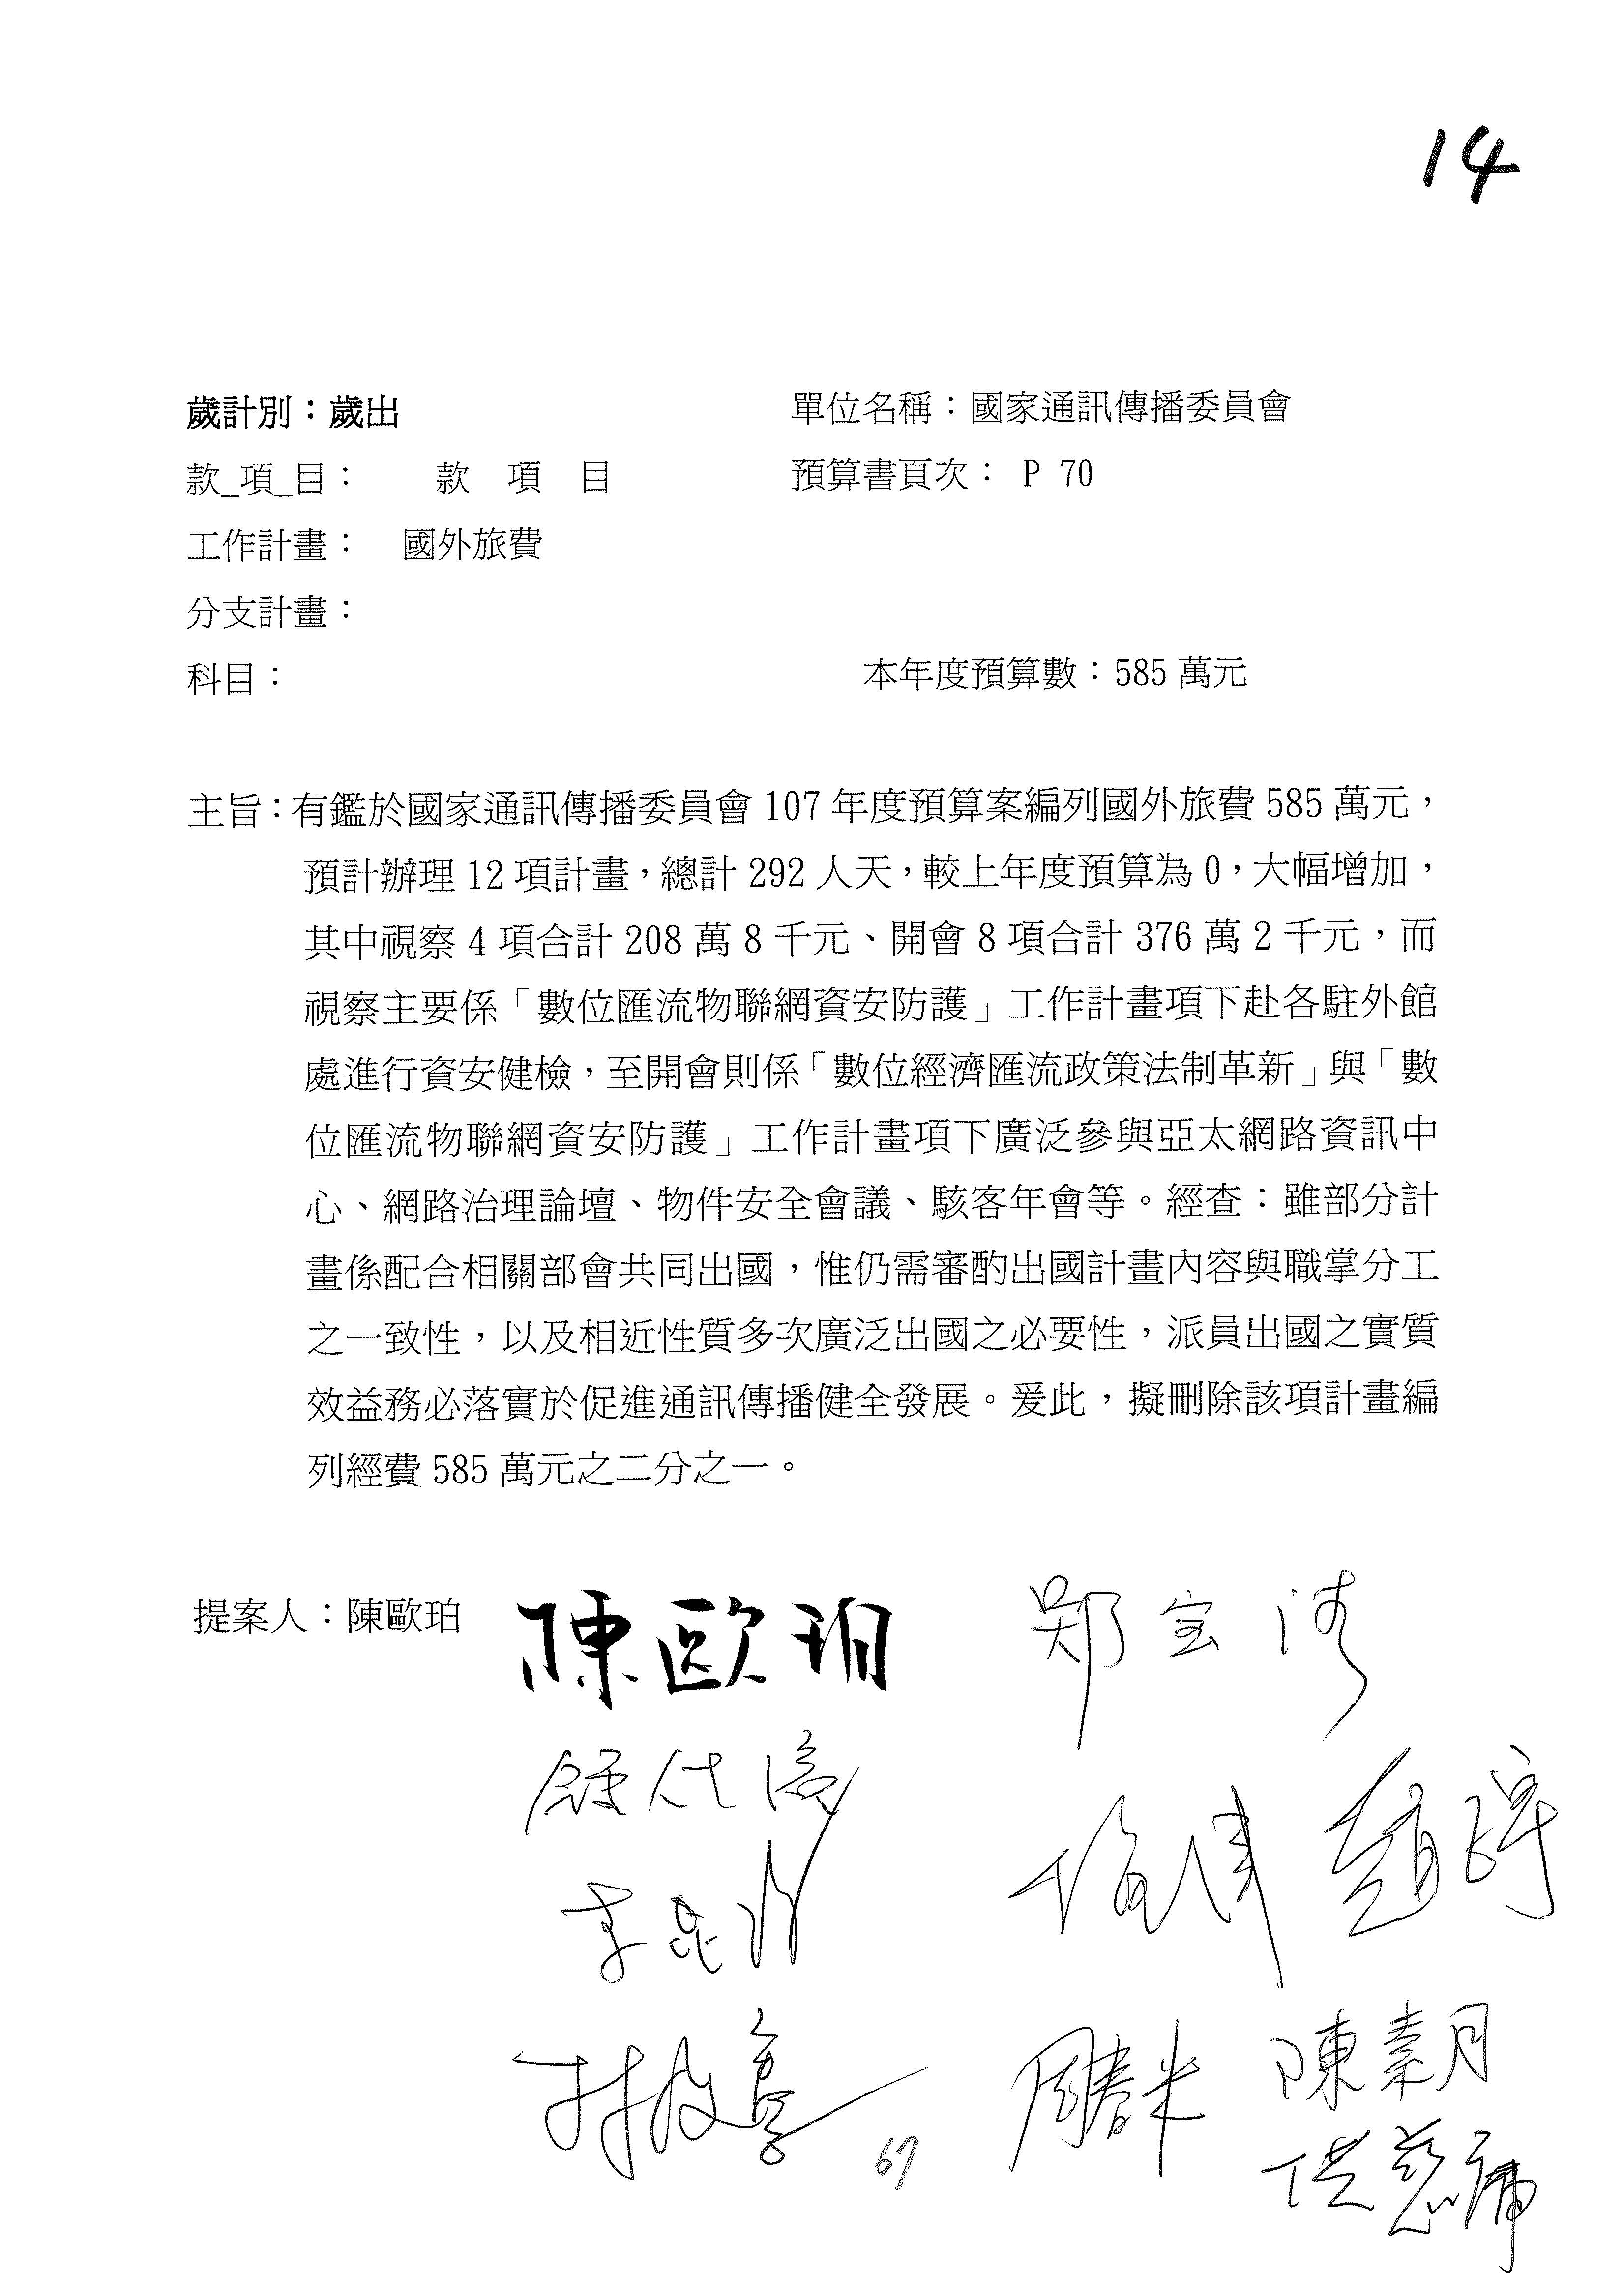 14
歲計別：歲出 單位名稱：國家通訊傳播委員會
款_項_目： 款 項 目 預算書頁次： P 70
工作計畫： 國外旅費
分支計畫：
科目： 本年度預算數：585 萬元
主旨：有鑑於國家通訊傳播委員會 107 年度預算案編列國外旅費 585 萬元，
預計辦理 12 項計畫，總計 292 人天，較上年度預算為 0，大幅增加，
其中視察 4 項合計 208 萬 8 千元、開會 8 項合計 376 萬 2 千元，而
視察主要係「數位匯流物聯網資安防護」工作計畫項下赴各駐外館
處進行資安健檢，至開會則係「數位經濟匯流政策法制革新」與「數
位匯流物聯網資安防護」工作計畫項下廣泛參與亞太網路資訊中
心、網路治理論壇、物件安全會議、駭客年會等。經查：雖部分計
畫係配合相關部會共同出國，惟仍需審酌出國計畫內容與職掌分工
之一致性，以及相近性質多次廣泛出國之必要性，派員出國之實質
效益務必落實於促進通訊傳播健全發展。爰此，擬刪除該項計畫編
列經費 585 萬元之二分之一。
提案人：陳歐珀 陳歐珀 鄭宝清
李昆
陳素月
67